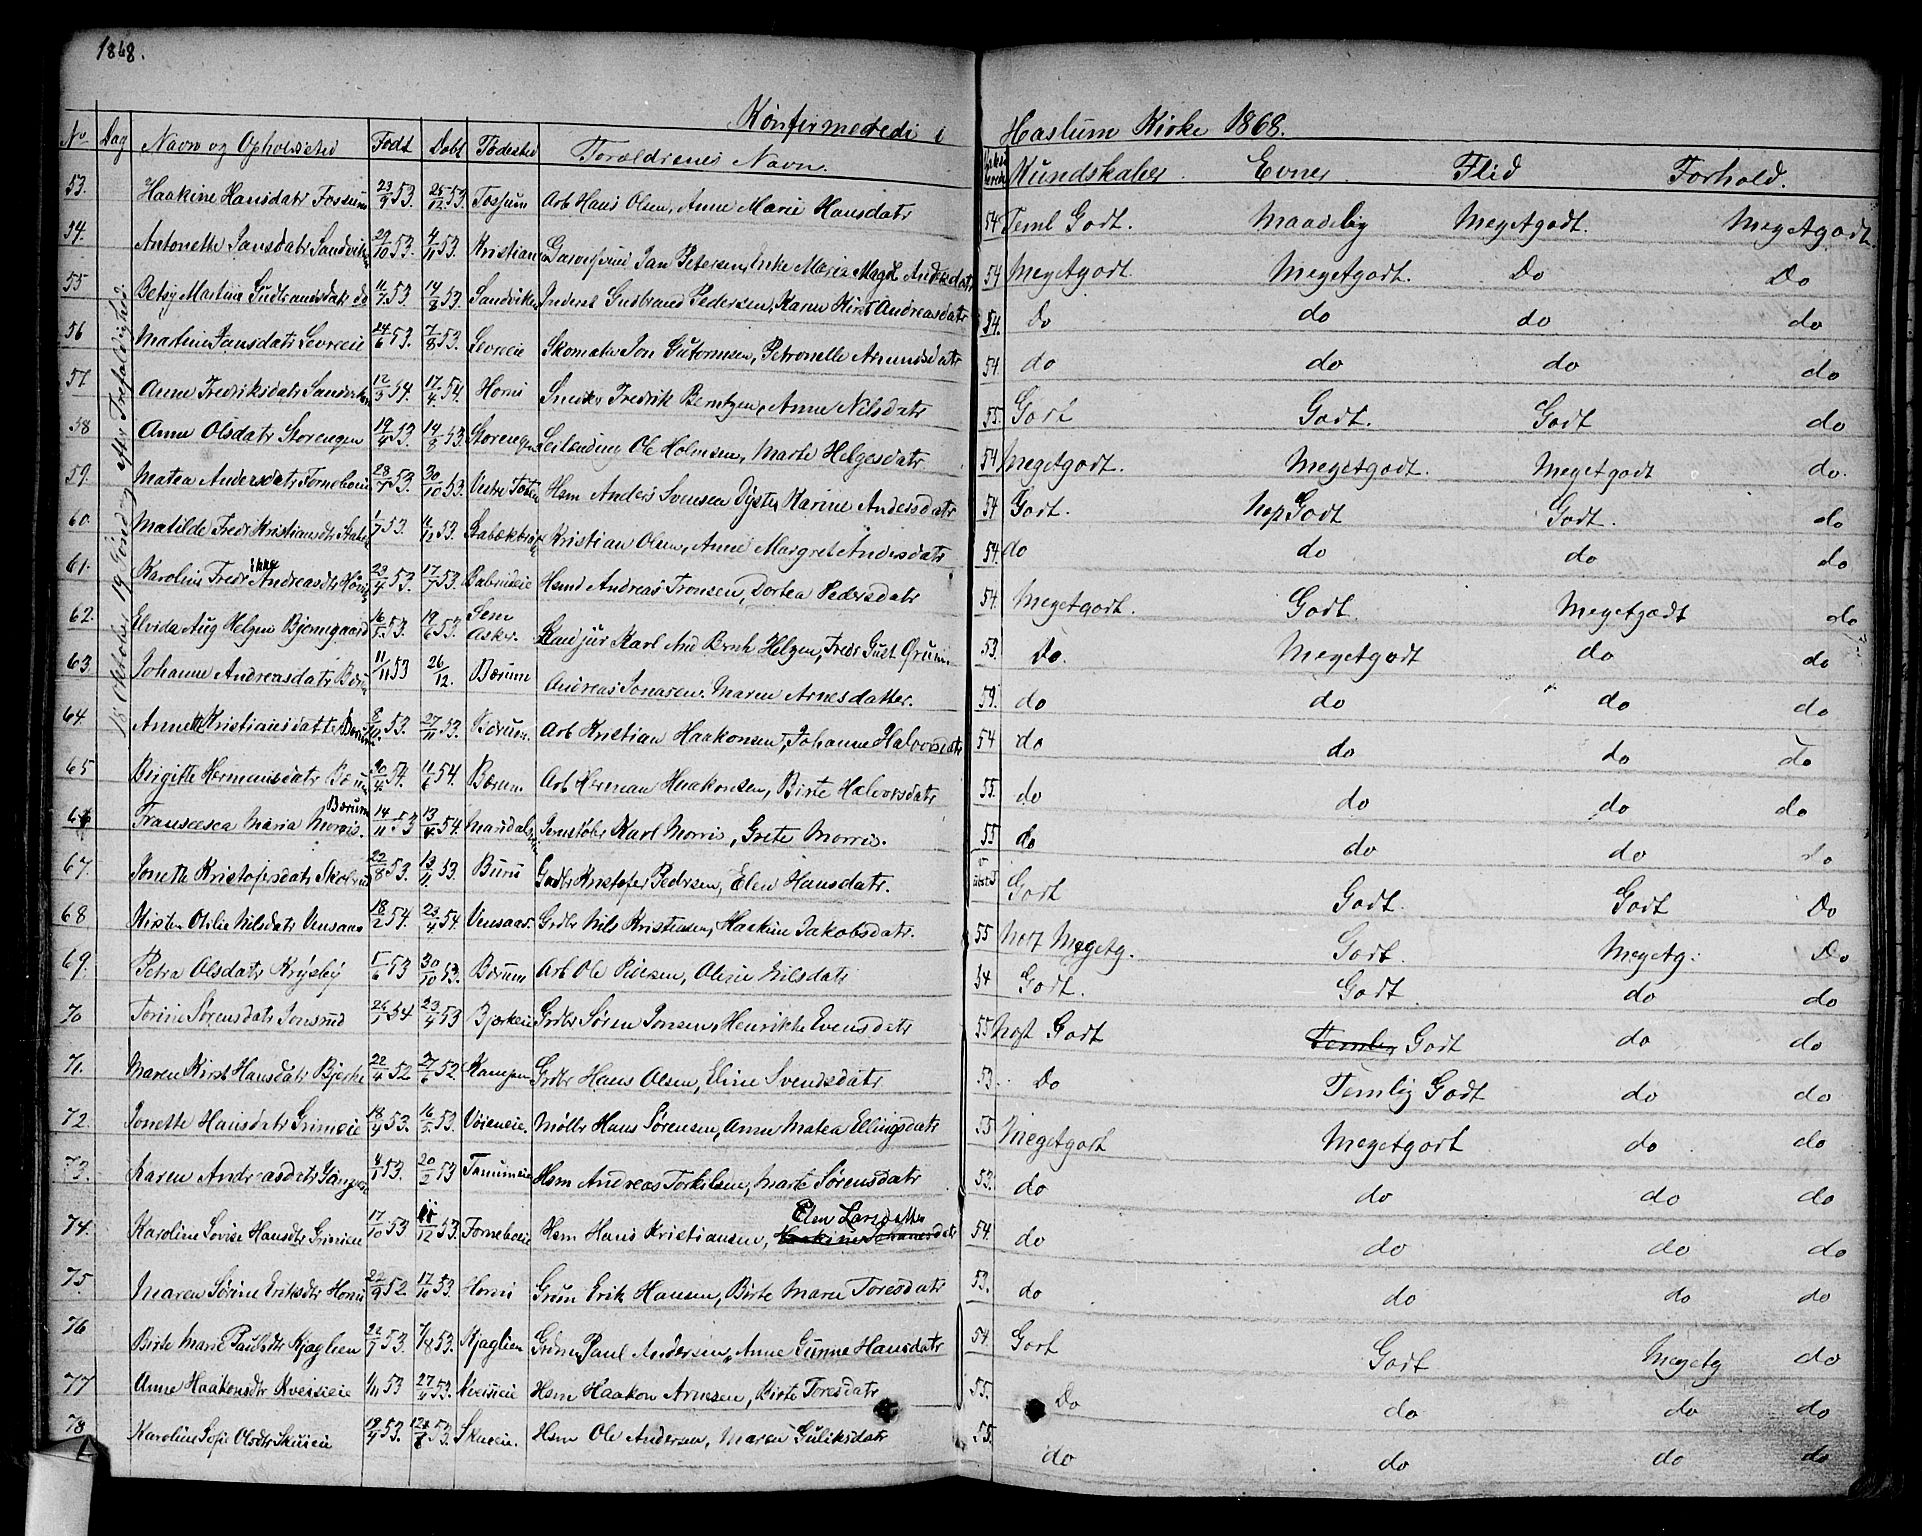 1868.
Konfirmerede i Haslum Kirke 1868.
No Dag Navn og Opholdssted Født Døbt Fødested Forældrenes Navn. Kundskaber. Evner. Flid Forhold.
18 Oktober 19 Søndag efter Trefoldighed.
53. Haakine Hansdatr Fossum 23/9 53. 25/12 53. Fossum Arb Hans Olsen, Anne Marie Hansdatr 54 Teml Godt. Maadelig MegetGodt. MegetGodt.
54. Antonette Jansdatr Sandviken 29/10 53. 4/11 53. Kristiania Jan Petersen, Inke Maria Magd Andrsdatr 54 MegetGodt. MegetGodt. Do Do
55 Betsy Martina Gudbrandsdatr do 11/7 53 14/8 53. Sandviken Inderst Gudbrand Pedersen, Karen Kirst Andreasdatr 54. Do do do do
56 Martine Jansdatr Levreeie 24/6 53. 7/8 53. Levreeie Skomaker Jon Gutormsen, Petronelle Amundsdatr 54 do do do do
57. Anne Fredriksdatr Sandviken 12/3 54. 17/4 54. Horni Sneker Fredrik Berntzen, Anne Nilsdatr 55. Godt Godt. Godt do
58 Anne Olsdatr Storengen 19/4 53. 14/8 53. Storengen Leilending Ole Holmsen, Marte Helgesdatr 54 MegetGodt. MegetGodt. MegetGodt do.
59. Matea Andersdatr Forneboeie 28/7 53. 30/10 53. Vestre Toten Hsm Anders Svensen Dyster Karine Andersdatr 54 Godt. Nogl Godt Godt. do
60. Matilde Fredr Kristiansdtr Stabek 1/7 53. 11/12 53. Kristian Olsen, Anne Margret Andersdatr 54. do do do do
61. Karoline Fredr Andreasdtr 23/4 53. 17/7 53. Hsmd Andreas Tronsen, Dortea Pedersdatr 54. MegetGodt. Godt. MegetGodt do
62. Elvida Aug Helgen Bjerregaard 16/5 53. 19/6 53. Sem Asker. Kand jur Karl And Bernh Helgen, Fredr Gust Qrum 53. Do. MegetGodt do do
63. Johanne Andreasdatr Bærum 11/11 53 26/12. Bærum Andreas Jonassen. Maren Arnesdatter. 59. do do do do
64. Anne Kristiansdatter Bærum 8/10 53. 27/11 53. Bærum. Arb Kristian Haakonsen, Johanne Halvorsdatr 54 do do do do
65 Birgitte Hermansdatr Bærum 20/4 54. 11/6 54. Bærum Arb Herman Haakonsen, Birte Halvorsdatr 55. do do do do
66 Franscesca Maria Morris. Bærum 14/11 53 13/4 54. Jernstøber Karl Morris, Grete Morris. 55 do do do do
67. Jonette Kristofersdatr Skolerud 22/8 53. 13/11 53. Burud Grdbr Kristofer Pedersen, Elen Hansdatr. Godt Godt. Godt Do
68 Kirsten Otilie Nilsdatr Vensaas 18/2 54. 23/4 54. Vensaas. Grdbr Nils Kristensen, Haakine Jakobsdatr. 55 MegetG. Godt. MegetG: Do
69. Petra Olsdatr Krydsby 5/6 53 30/10 53. Bærum Arb Ole Olsen, Oline Nilsdatr 54 Godt. Godt. do do
70 Torine Sørensdatr Jonsrud 26/1 54 23/4 53 Bjerkeeie Grdbr Søren Jonsen, Henrikke Evensdatr 55 Nogt Godt Temlig Godt do do
71. Maren Kirst Hansdatr Bjerke 22/4 52 27/6 52. Kampen Grdbr Hans Olsen, Eline Svendsdatr 53. Do Temlig Godt do do
72 Jonette Hansdatr Grinieie 18/4 53. 16/5 53. Vøieneie. Møllr Hans Sørensen, Anne Matea Ellingsdatr 55 MegetGodt MegetGodt do do
73. Karen Andreasdatr 4/1 53. 20/2 53 Tanumeie Hsm Andreas Torkilsen, Marte Sørensdatr 53. do do do do
74. Karoline Lovise Hansdtr Grinieie 17/10 53 11/12 53. Forneboeie Hsm Hans Kristiansen, Haakine Johannesdatr Elen Larsdatter 54. do do do do
75. Maren Sørine Eriksdtr Horni 22/9 52 17/10 53. Horni Grdm Erik Hansen, Birte Marie Toresdatr 53. do do do do
76 Birte Marie Paulsdtr Kjaglien 22/7 53. 7/8 53. Kjaglien Grdmd Paul Andersen, Anne Gunne Hansdatr 54. Godt Godt MegetG do
77 Anne Haakonsdtr Kveiseie 1/11 53 27/4 53. Kveiseie Hsm Haakon Arnesen, Birte Toresdatr 55. Do do do do
78. Karoline Sofie Olsdtr Skuieie 19/4 53. 12/6 53. Skuieie. Hsm Ole Andersen, Maren Guliksdatr 55. do do do do